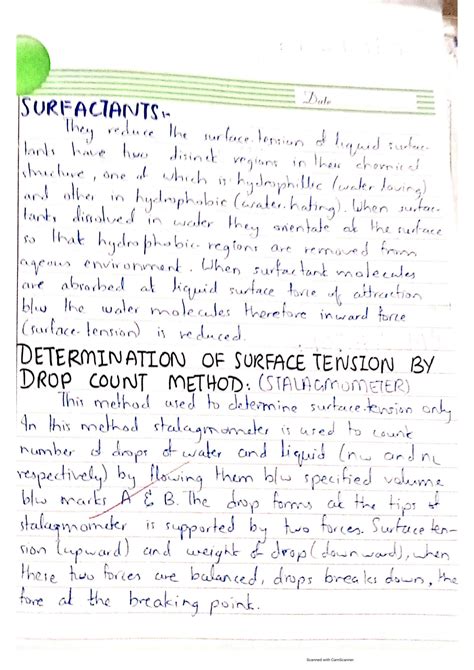 Date
SURFACTANTS:-
They reduce the surface.tension of liquid surfac-
tants have two disinct regions in their chemical
structure, one of which is hydrophillic (water loving)
and other in hydrophobic (water.hating). When surfac-
tants dissolved in water they orientate at the surface
so that hydrophobic regions are removed from
aqeous environment. When surfactant molecules
are absorbed at liquid surface force of attraction
b/w the water molecules therefore inward force
(surface.tension) is reduced.
DETERMINATION OF SURFACE TENSION BY
DROP COUNT METHOD: (STALAGMOMETER)
This method used to determine surface.tension only.
In this method stalagmometer is used to count
number of drops of water and liquid (nw and nL
respectively) by flowing them b/w specified volume
b/w marks A & B. The drop forms at the tips of
stalagmometer is supported by two forces. Surface ten-
sion (upward) and weight of drop (downward), when
these two forces are balanced, drops breaks down, the
fore at the breaking point.
Scanned with CamScanner